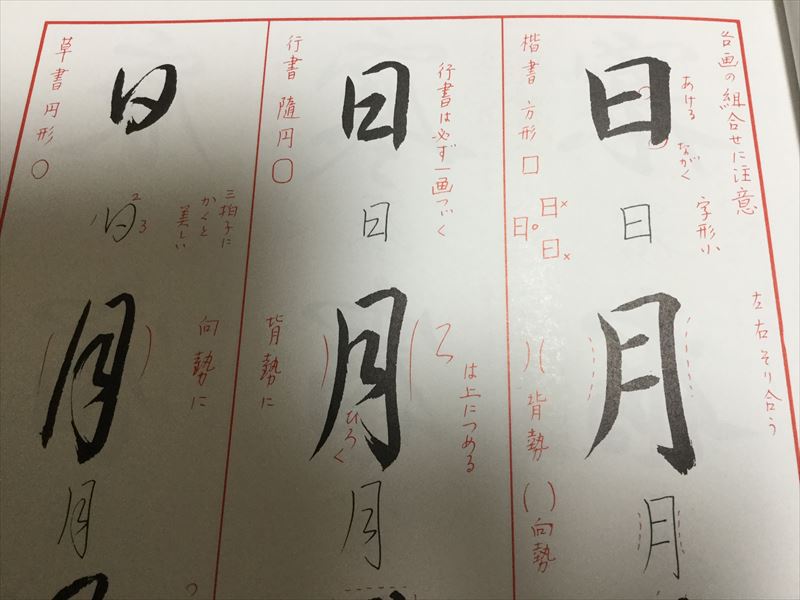 各画の組合せに注意
あける
ながく
日
字形小
楷書 方形 □
日
日×
日○
日×
左右そり合う
月
)( 背勢
()向勢
月
行書は必ず一画づく
日
行書 随円 ○
日
は上につめる
月
ひろく
背勢に
月
日
草書円形 ○
三拍子に
かくと
美しい
日
2
3
向勢に
月
月